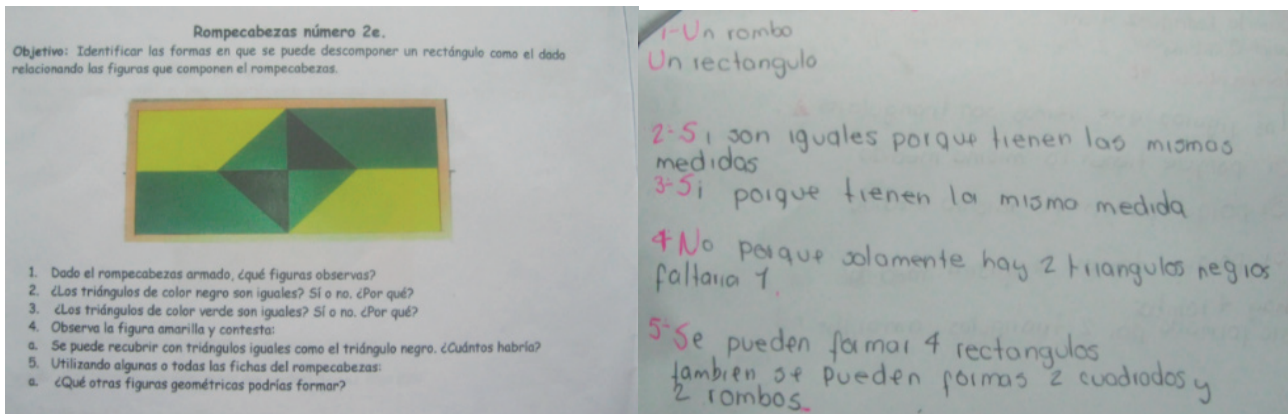 Rompecabezas número 2e.
Objetivo: Identificar las formas en que se puede descomponer un rectángulo como el dado
relacionando las figuras que componen el rompecabezas.
1. Dado el rompecabezas armado, ¿qué figuras observas?
2. ¿Los triángulos de color negro son iguales? Sí o no. ¿Por qué?
3. ¿Los triángulos de color verde son iguales? Sí o no. ¿Por qué?
4. Observa la figura amarilla y contesta:
a. Se puede recubrir con triángulos iguales como el triángulo negro. ¿Cuántos habría?
5. Utilizando algunas o todas las fichas del rompecabezas:
a. ¿Qué otras figuras geométricas podrías formar?
1-Un rombo
Un rectangulo
2-Si son iguales porque tienen las mismas
medidas
3-Si porque tienen la misma medida
4-No porque solamente hay 2 triangulos negros
faltaria 1.
5-Se pueden formar 4 rectangulos
tambien se pueden formas 2 cuadrados y
2 rombos.